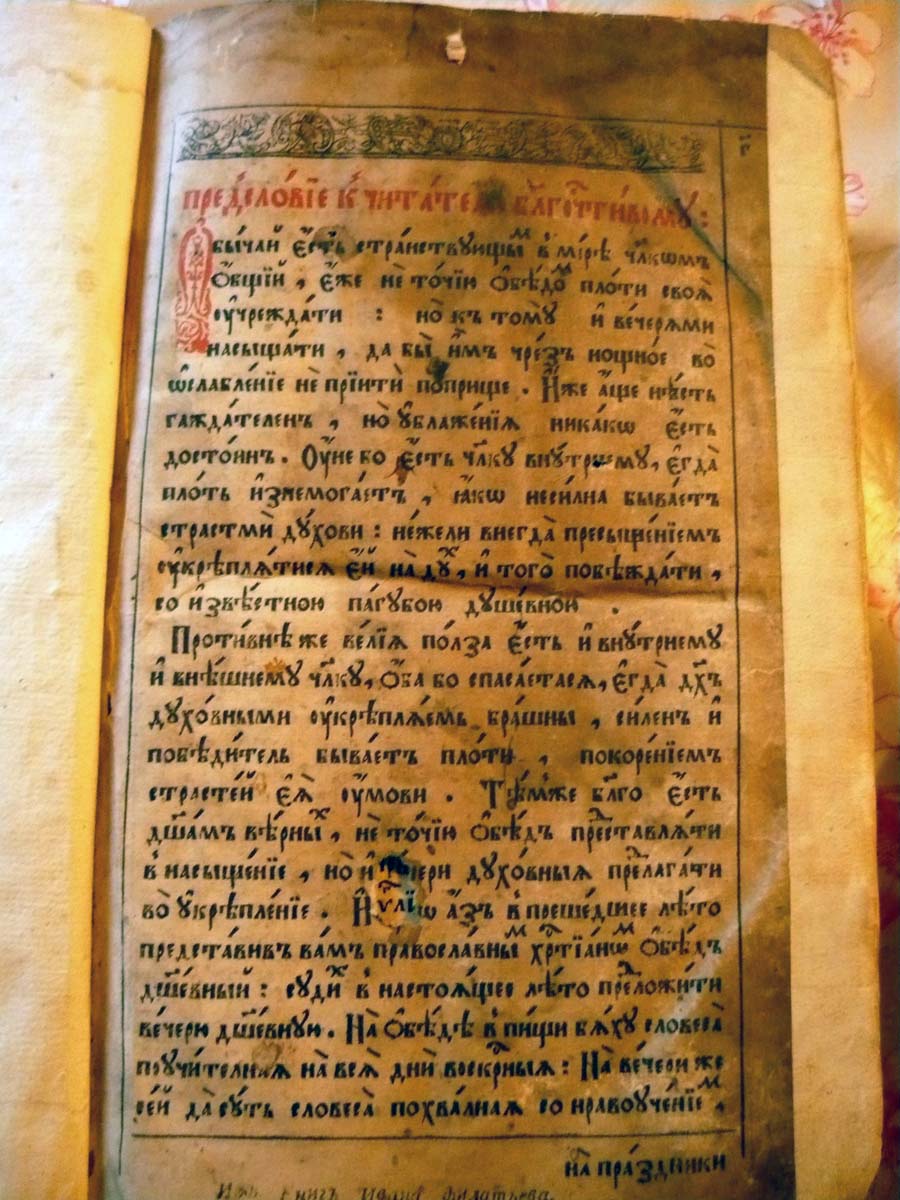 г҃
ПРЕДИСЛО́ВЇЕ К̾ ЧИТА́ТЕЛЮ БЛ҃ГОЧТИ́ВОМУ :
Ѻбы́чай є҆́сть стра́нствующыⷨ в̾ мі́рѣ чл҃кѡмъ
ѻ҆́бщїй , є҆́же не то́чїю ѻ҆бѣ́доⷨ пло́ти своѧ̀
ᲂу҆чрежда́ти : но̀ къ тому̀ и҆ вече́рѧми
насыща́ти , да бы̀ и҆̀мъ чре́зъ нощно́е во̀
ѡ҆слабле́нїе не прїитѝ по́прище . И҆́же а҆́ще нѣ́сть
гажда́теленъ , но̀ ᲂу҆блаже́нїѧ ника́кѡ є҆́сть
досто́инъ . Оу҆́не бо є҆́сть чл҃ку вну́трнему , є҆гда̀
пло́ть и҆знемога́етъ , ꙗ҆́кѡ неси́лна быва́етъ
страстмѝ ду́хови : не́жели внегда̀ пресыще́нїемъ
ᲂу҆крѣплѧ́тисѧ є҆́й на дꙋ́хъ , и҆ того̀ побѣжда́ти ,
со и҆звѣ́стною па́губою душе́вною .
Проти́внѣ же ве́лїѧ по́лза є҆́сть и҆ вну́трнему
и҆ внѣ́шнему чл҃ку , ѻ҆́ба бо спаса́етасѧ , є҆гда̀ дх҃ъ
духо́вными ᲂу҆крѣплѧ́емь бра́шны , си́ленъ и҆
побѣди́тель быва́етъ пло́ти , покоре́нїемъ
страсте́й є҆ѧ̀ ᲂу҆мови . Тѣ́мже бл҃го є҆́сть
дш҃а́мъ вѣ́рныⷯ , не то́чїю ѻ҆бѣ́дъ преⷣставлѧ́ти
в̾ насыще́нїе , но̀ и҆ ве́чери духо́вныѧ преⷣлага́ти
во̀ ᲂу҆крѣпле́нїе . И҆ а҆́зъ в̾ проше́дшее лѣ́то
предста́вивъ ва́мъ правосла́вныⷨ хрⷭ҇тїа́нѡⷨ ѻ҆бѣ́дъ
дш҃е́вный : суди́х в̾ настоѧ́щее лѣ́то преⷣложи́ти
вече́рю дш҃е́вную . На̀ ѻ҆бѣ́дѣ в̾ пи́щи бѧ́ху словеса̀
поучи́телнаѧ на̀ всѧ̀ днѝ воскр҇ныѧ : На̀ ве́чери же
се́й да̀ су́ть словеса̀ похва́лнаѧ со нравоуче́нїеⷨ ,
на̀ пра́здники
Изъ книгъ Ивана Филатьева.